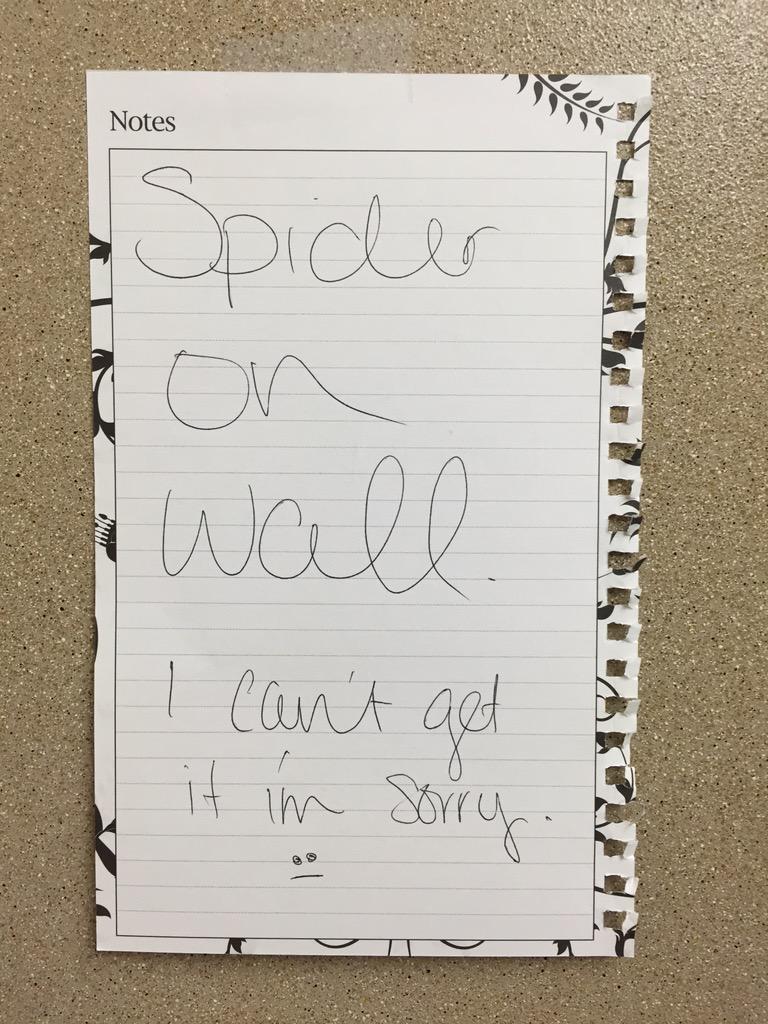 Notes
Spider
on
Wall.
I can't get
it i'm sorry.